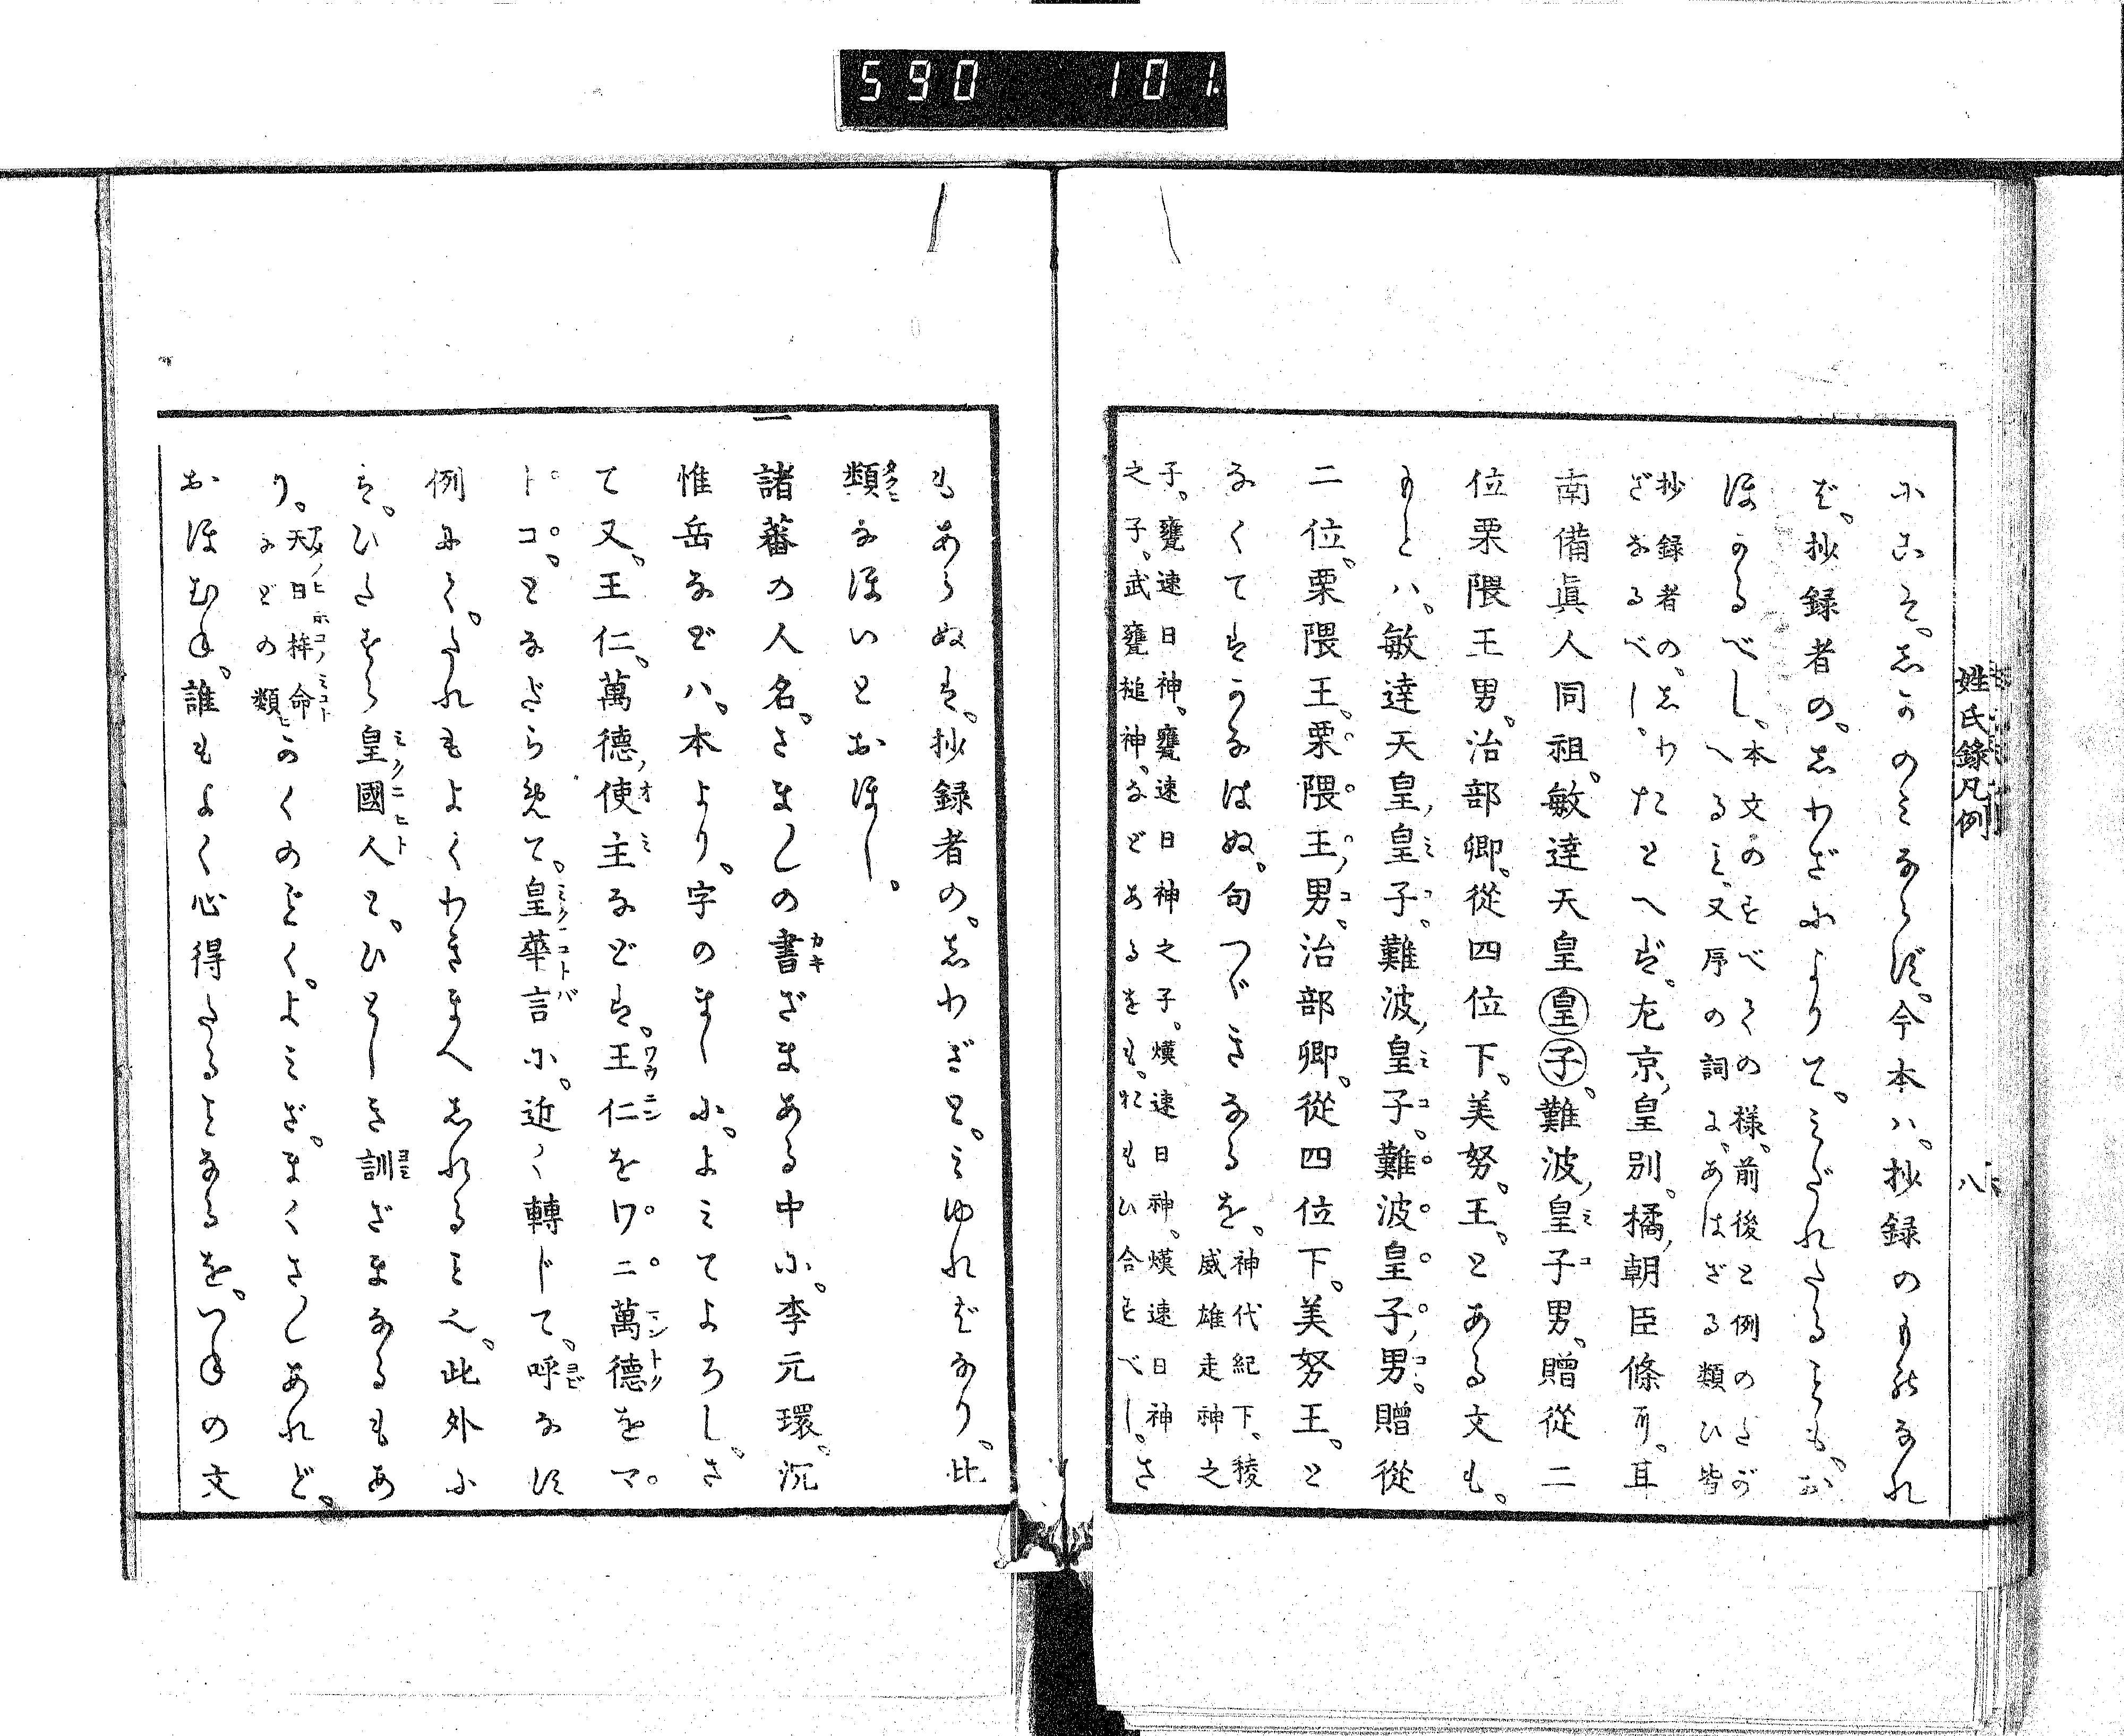 590 101.
姓氏錄凡例
八
ふこそ。志かのみならず。今本ハ。抄録のものなれ
ば。抄録者の。志わざによりて。みだれたることも。お
ほかるべし。本文のすべての様。前後と例のたが
へるミ、又序の詞に、あはざる類ひ皆
抄録者の。志わ
ざなるべし。たとへば。左京皇別。橘朝臣條ニ。耳
南備眞人同祖。敏達天皇皇子。難波皇子男。贈從二
位栗隈王男。治部卿。從四位下。美努。王。とある文も。
もとハ。敏達天皇皇子。難波皇子。難波皇子男。贈從
二位。栗隈王。栗隈王男。治部卿。從四位下。美努王。と
なくてはかなはぬ。句つゞきなるを。神代紀下。稜
威雄走神之
子。甕速日神。甕速日神之子。熯速日神。熯速日神
之子。武甕槌神。などあるをも。おもひ合すべし。さ
もあらぬは。抄録者の。志わざと。みゆればなり。此
類なほいとおほし。
一
諸蕃の人名。さま〳〵の書ざまある中に。李元環。沉
惟岳などハ。本より。字のまゝに。よみてよろし。さ
て又。王仁。萬德使主などは。王仁をワニ萬德をマ
トコ。となだら免て。皇華言に。近く轉じて。呼なす
例にて。これもよくわきまへ志れるミ之。此外に
は。ひたすら皇國人と。ひとしき訓ざまなるもあ
り。天日桙命
などの類
かくのごとく。よミざまくさ〴〵あれど。
おほむね。誰もよく心得たることなるを。つねの文